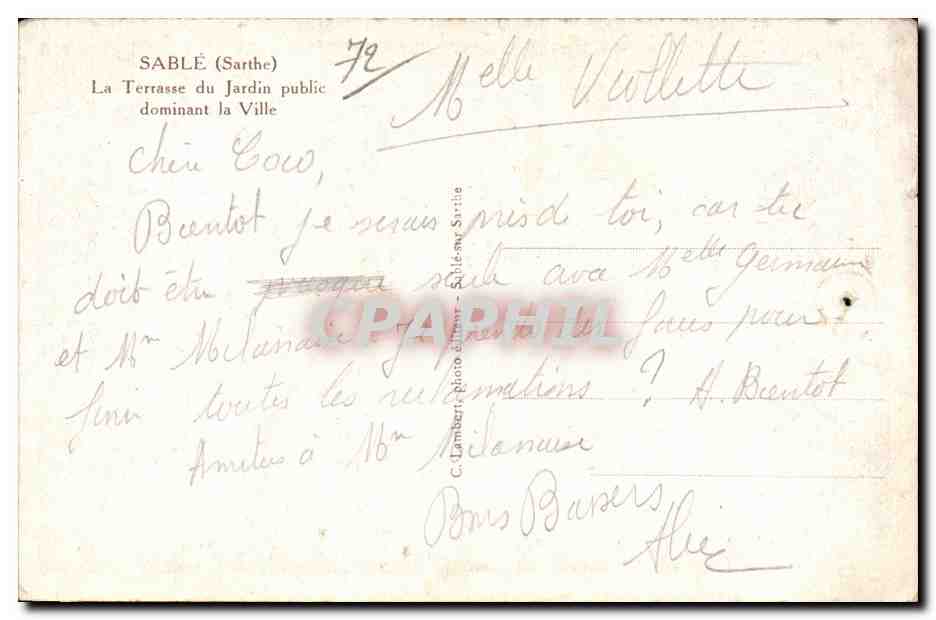 SABLÉ (Sarthe)
La Terrasse du Jardin public
dominant la Ville
72
Melle Viollette
Chère Coco,
Bientot je serais près de toi, car tu
doit être seule avec Melle Germaine
et Mm Milanaise. Je prends les pour
finir toutes les reclamations ? A Bientot
Amities à Mm Milanaise
Bons Baisers
C. Lambert, photo éditeur - Sablé-sur-Sarthe
CPAPHIL